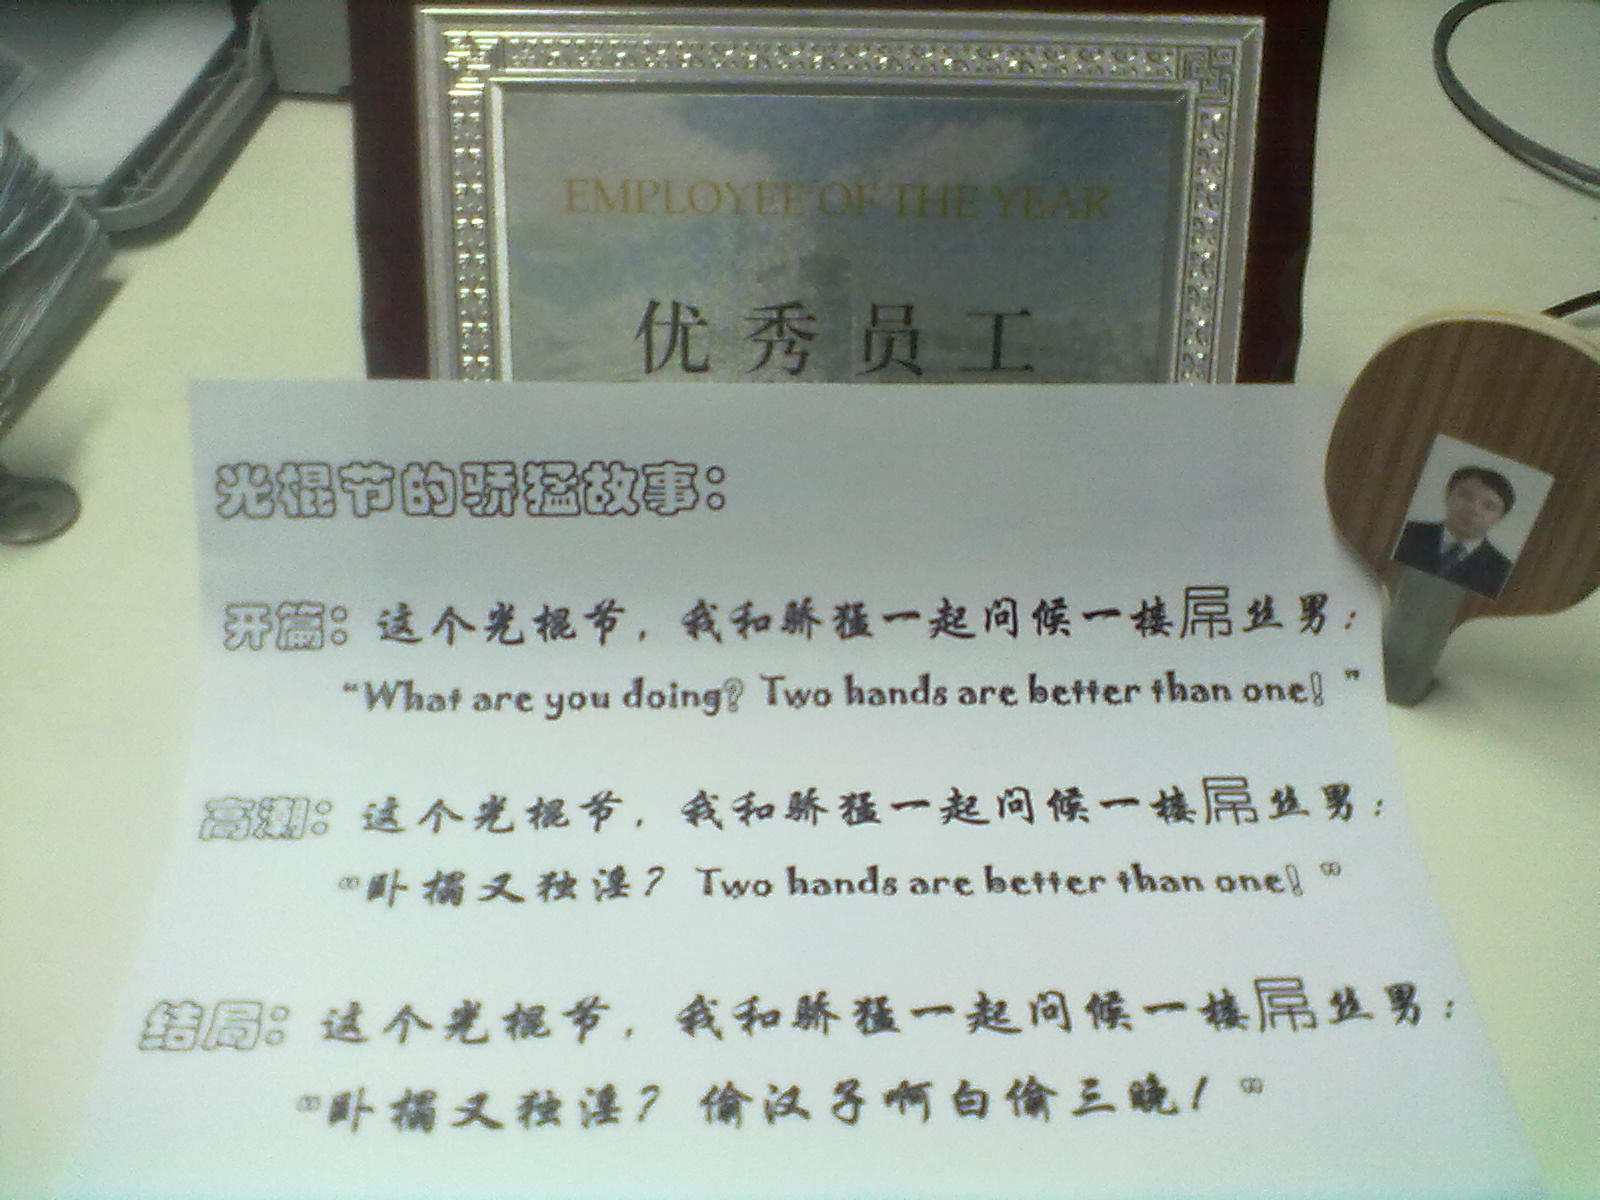 EMPLOYEE OF THE YEAR
优秀员工
光棍节的骄猛故事：
开篇：这个光棍节，我和骄猛一起问候一楼屌丝男：
“What are you doing? Two hands are better than one! ”
高潮：这个光棍节，我和骄猛一起问候一楼屌丝男：
“卧榻又独淫？ Two hands are better than one! ”
结局：这个光棍节，我和骄猛一起问候一楼屌丝男：
“卧榻又独淫？偷汉子啊白偷三晚！”